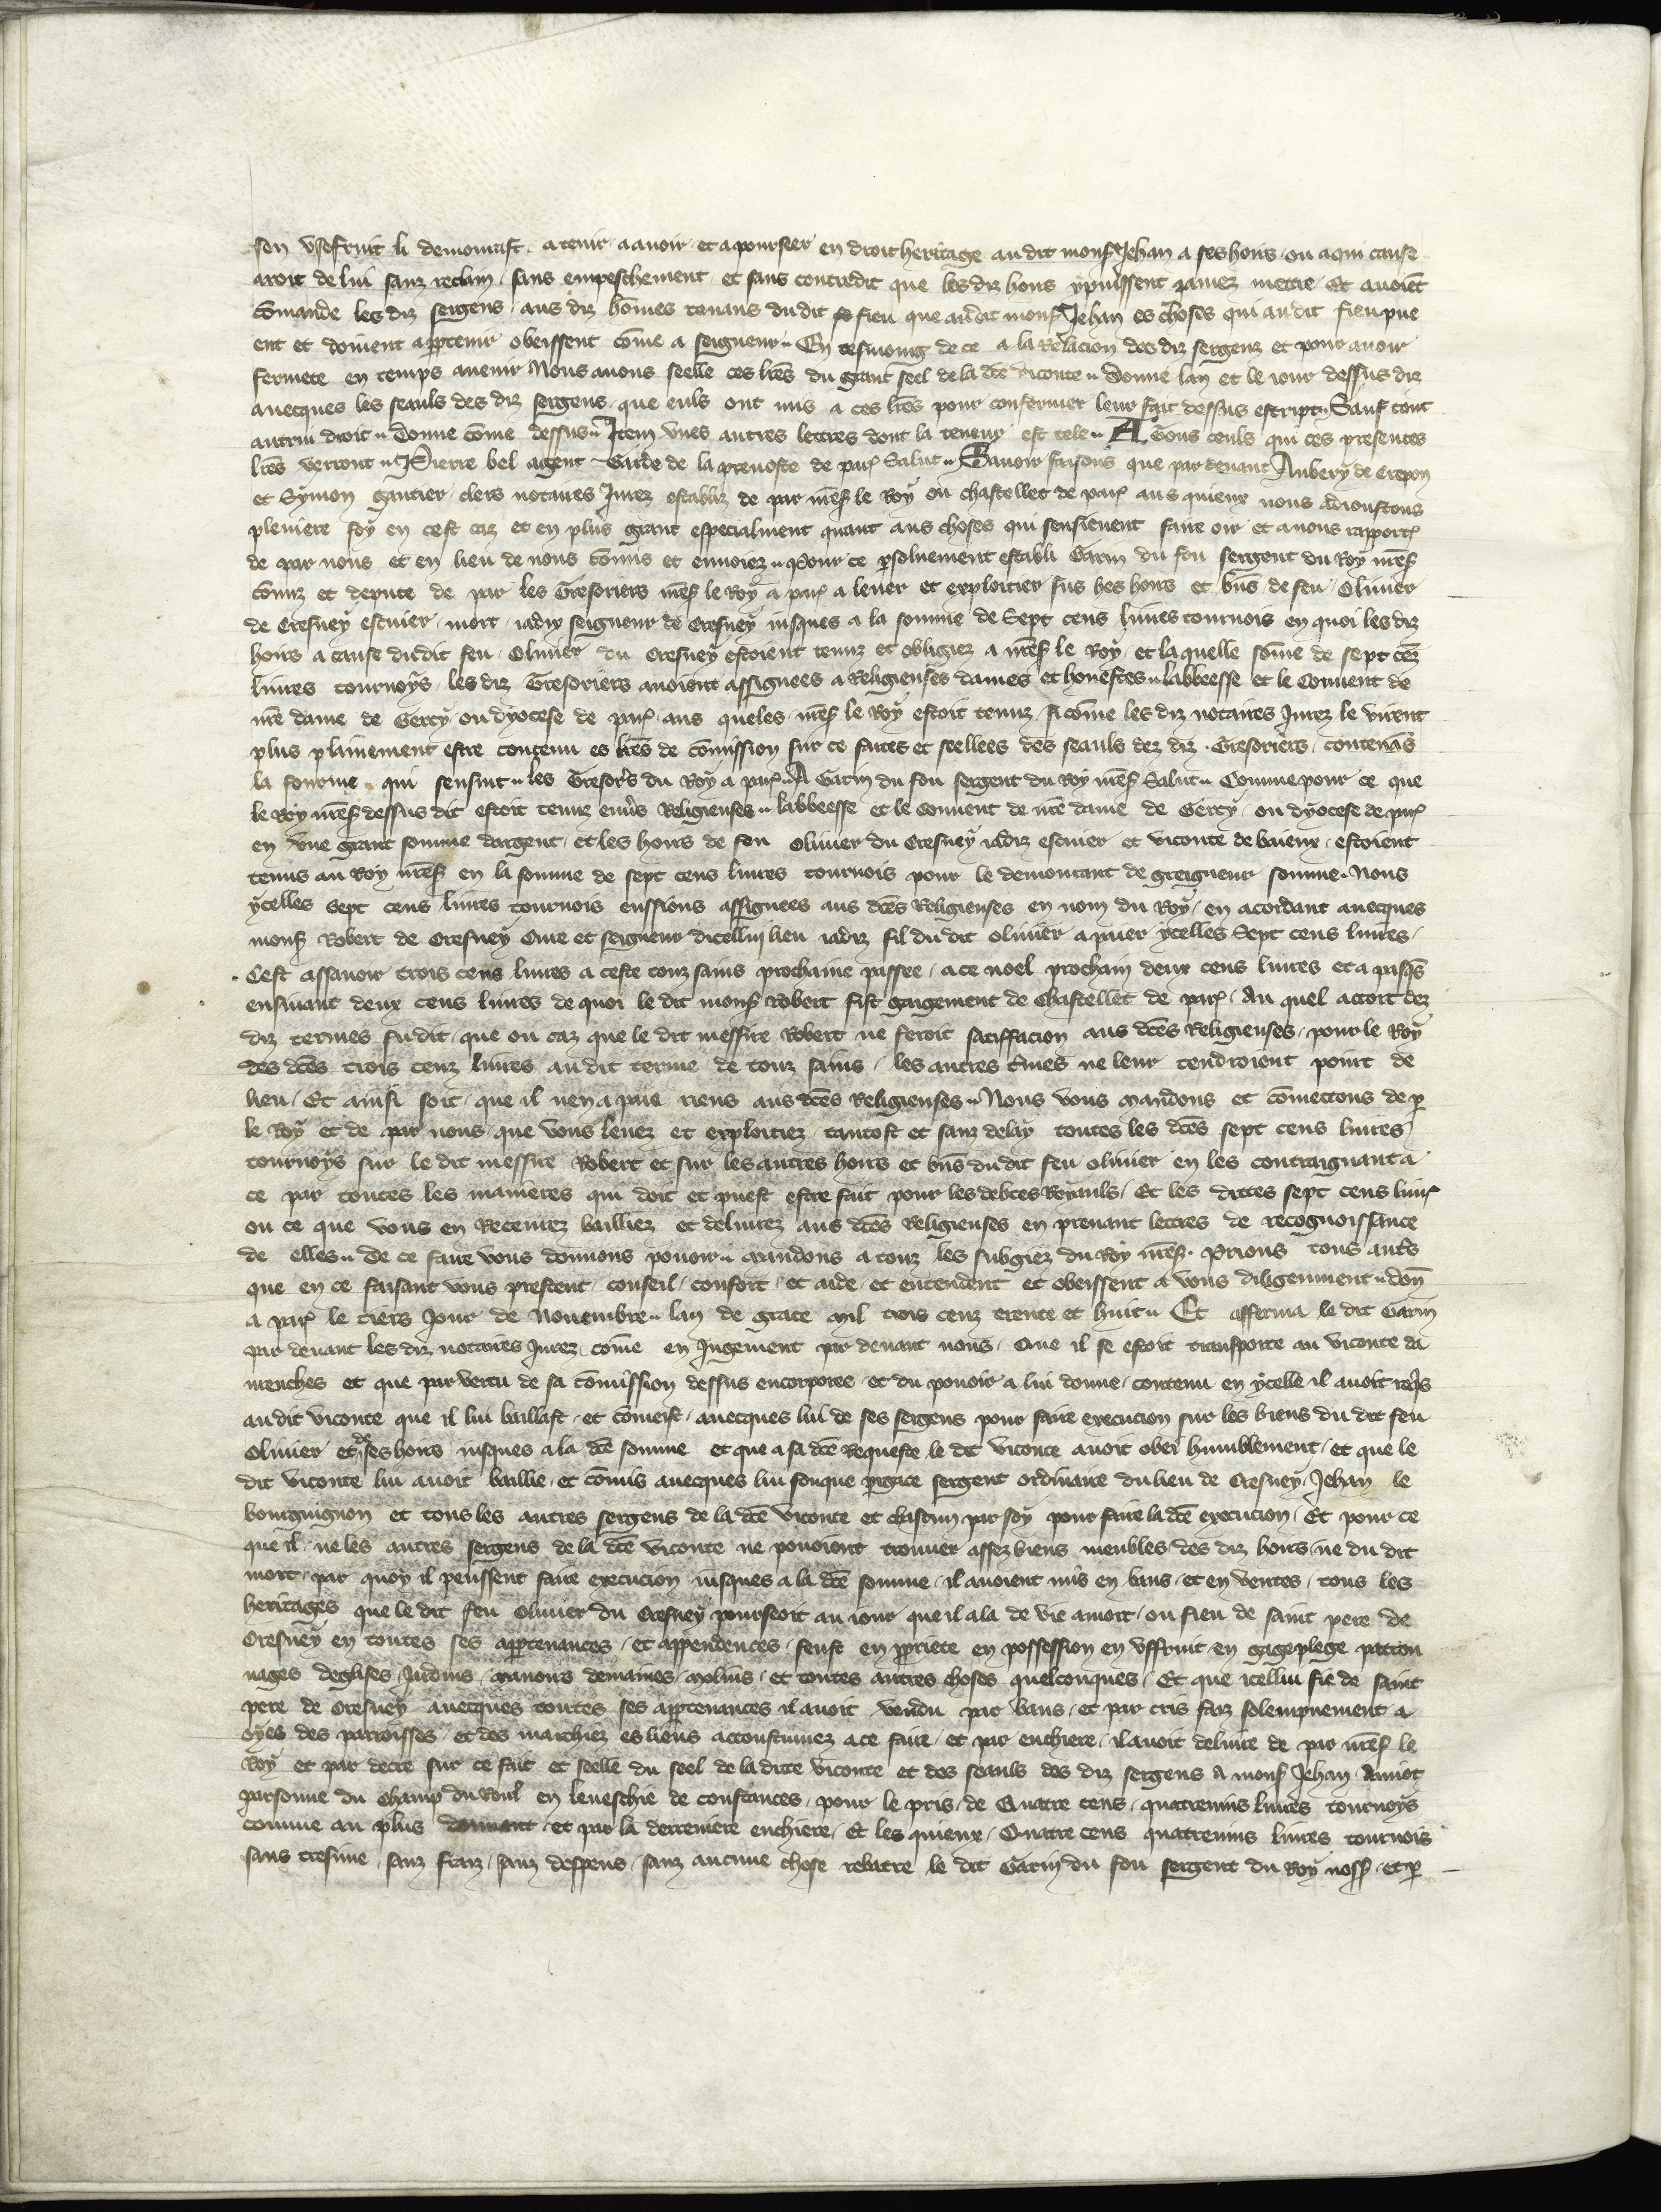 sen usefruit li demourast a tenir a avoir et a pourseer en droit heritage audit mons Jehan a ses hoirs ou a qui cause
aroit de lui sanz reclaim sans empeschement et sans contredit que les diz hoirs y puissent jamez mettre Et avoiēt
cōmande les diz sergens aus diz hōmes tenans du dit fieu que audit mons Jehan es choses qui audit fieu pue
ent et doivent apptenir obeissent cōme a seigneur En tesmoing de ce a la relacion des diz sergenz et pour avoir
fermete en temps avenir Nous avons seelle ces lrēs du grant seel de la dcē viconte donne lan et le iour dessus diz
avecques les seauls des diz sergens que euls ont mis a ces lrēs pour confermer leur fait dessus escript Sauf tout
autrui droit donne cōme dessus Item unes autres lettres dont la teneur est tele A Tous ceuls qui ces presentes
lrēs verront Pierre bel agent Garde de la prevoste de par Salut Savoir faisons que par devant Aubery de Crepon
et Symon gautier clers notaires Jurez establiz de par nrēs le Roy ou chastellet de par aus quieux nous adioustons
pleniere foy en cest caz et en plus grant especialment quant aus choses qui sensievent faire oir et a nous rapport
de par nous et en lieu de nous cōmis et envoiez Pour ce psonement establi Garin du fou sergent du Roy nrēs
cōmis et depute de par les Tresoriers nrēs le Roy a par a lever et exploitier sus hes hoirs et bns de feu Olivier
de Cresney escuier mort iadiz seigneur de Cresney iusques a la somme de Sept cens livres tournois en quoi les diz
hoirs a cause dudit feu Olivier du Cresney estoient tenuz et obligiez a nrēs le Roy et la quelle sōme de sept cēz
livres tournoys les diz Tresoriers avoient assignees a Religieuses dames et honestes labbeesse et le Convent de
nrē dame de Gercy ou dyocese de par aus queles nrēs le Roy estoit tenuz si cōme les diz notaires Jurez le virent
plus plainement estre contenu es lrēs de cōmission sur ce faites et seellees des seauls dez diz Tresoriers contenās
la fourme qui sensuit les Tresors du Roy a par A Garin du fou sergent du Roy nrēs Salut Comme pour ce que
le Roy nrēs dessus dit estoit tenuz envs Religieuses labbeesse et le Convent de nrē dame de Gercy ou dyocese de par
en une grant somme dargent et les hoirs de feu Olivier du Cresney iadiz escuier et viconte de baieux estoient
tenus au Roy nrēs en la somme de sept cens livres tournois pour le demourant de greigneur somme Nous
ycelles Sept cens livres tournois eussions assignees aus dcēs Religieuses en nom du Roy en acordant avecques
mons Robert de Cresney Cure et seigneur dicellui lieu iadiz fil du dit olivier a paier ycelles Sept cens livres
Cest assavoir trois cens livres a ceste touz sains prochaine passee a ce noel prochain deux cens livres et a pasqs
ensuiant deux cens livres de quoi le dit mons robert fist gaigement de Chastellet de par Au quel accort dez
diz termes fu dit que ou caz que le dit messire Robert ne feroit satiffacion aus dcēs Religieuses pour le Roy
des dcēs trois cenz livres audit terme de touz sains les autres tmes ne leur tendroient point de
lieu Et ainsi soit que il nen a paie riens aus dcēs Religieuses Nous vous mandons et cōmettons de p
le Roy et de par nous que vous levez et exploitiez tantost et sanz delay toutes les dcēs sept cens livres
tournoys sur le dit messire Robert et sur les autres hoirs et bns du dit feu olivier en les contraignant a
ce par toutes les manieres qui doit et puest estre fait pour les debtes Royauls Et les dittes sept cens livr
ou ce que vous en recevrez bailliez et delivrez aus dcēs Religieuses en prenant lettres de recognoissance
de elles De ce faire vous donnons pouoir mandons a touz les subgiez du Roy nrēs Prions tous autrs
que en ce faisant vous prestent conseil confort et aide et entendent et obeissent a vous diligenment doñ
a par le tiers Jour de Novembre lan de grace mil trois cenz trente et huit Et afferma le dit Garin
par devant les diz notaires Jurez cōme en Jugement par devant nous Que il se estoit transporte au viconte da
menches et que par vertu de sa cōmission dessus encorporee et du pouoir a lui donne contenu en ycelle il avoit reqs
audit viconte que il lui baillast et cōmeist avecques lui de ses sergens pour faire execucion sur les biens du dit feu
Olivier et de ses hoirs iusques a la dcē somme et que a sa dcē Requeste le dit viconte avoit obei humblement et que le
dit viconte lui avoit baillie et cōmis avecques lui sergent ordinaire du lieu de Cresney Jehan le
bourguignon et tous les autres sergens de la dcē viconte et chascun par soy pour faire la dcē execucion Et pour ce
que il ne les autres sergens de la dcē viconte ne pouoient trouver assez biens meubles des diz hoirs ne du dit
mort par quoy il peussent faire execucion iusques a la dcē somme il avoient mis en bans et en ventes tous les
heritages que le dit feu Olivier du Cresney pourseoit au iour que il ala de vie a mort ou fieu de saint pere de
Cresney en toutes ses apptenances et appendences feust en ppriete en possession en usffruit en gageplege patron
nages deglises Jardins manoirs demaines molins et toutes autres choses quelconques Et que icellui fie de saint
pere de Cresney avecques toutes ses apptenances il avoit vendu par bans et par cris faiz solempnement a
oyes des parroisses et des marchiez es lieus acoustumez a ce faire et par enchiere il avoit delivre de par nrēs le
Roy et par decre sur ce fait et seelle du seel de la dicte viconte et des seauls des diz sergens A mons Jehan Amiot
parsonne du Champ du Boul en leveschie de constances pour le pris de Quatre cens quatrevins livres tournoys
comme au plus donnant et par la derreniere enchiere Et les quieux Quatre cens quatrevins livres tournois
sans tresime sanz fraiz sanz despens sanz aucune chose rebatre le dit Garin du fou sergent du Roy noss et p